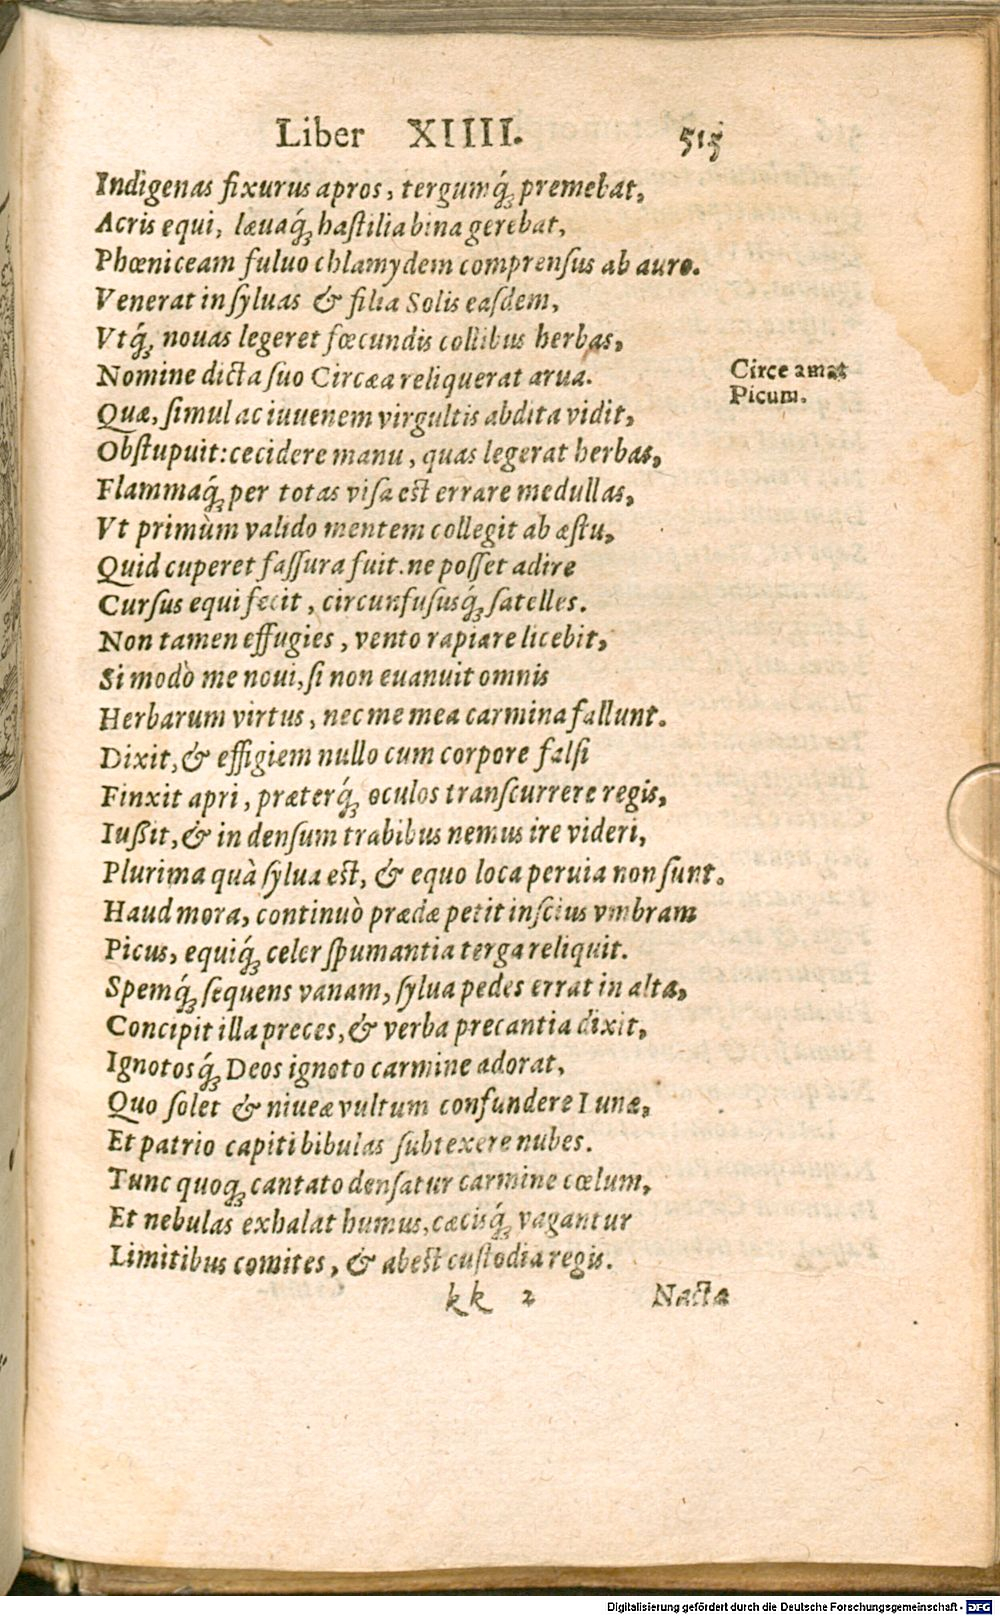 Liber XIIII. 515
Indigenas fixurus apros, tergumq́ꝫ premebat,
Acris equi, læuaq́ꝫ haſtilia bina gerebat,
Phœniceam fuluo chlamydem comprenſus ab auro.
Venerat in ſyluas & filia Solis eaſdem,
Vtq́ꝫ nouas legeret fœcundis collibus herbas,
Nomine dicta ſuo Circæa reliquerat arua.
Circe amat
Picum.
Quæ, ſimul ac iuuenem virgultis abdita vidit,
Obſtupuit: cecidere manu, quas legerat herbas,
Flammaq́ꝫ per totas viſa est errare medullas,
Vt primùm valido mentem collegit ab æſtu,
Quid cuperet faſſura fuit. ne poſſet adire
Curſus equi fecit, circunfuſusq́ꝫ ſatelles.
Non tamen effugies, vento rapiare licebit,
Si modò me noui, ſi non euanuit omnis
Herbarum virtus, nec me mea carmina fallunt.
Dixit, & effigiem nullo cum corpore falſi
Finxit apri, præterq́ꝫ oculos tranſcurrere regis,
Iußit, & in denſum trabibus nemus ire videri,
Plurima quà ſylua est, & equo loca peruia non ſunt.
Haud mora, continuò prædæ petit inſcius vmbram
Picus, equiq́ꝫ celer ſpumantia terga reliquit.
Spemq́ꝫ ſequens vanam, ſylua pedes errat in alta,
Concipit illa preces, & verba precantia dixit,
Ignotosq́ꝫ Deos ignoto carmine adorat,
Quo ſolet & niueæ vultum confundere Lunæ,
Et patrio capiti bibulas ſubtexere nubes.
Tunc quoqꝫ cantato denſatur carmine cœlum,
Et nebulas exhalat humus, cæcisq́ꝫ vagantur
Limitibus comites, & abest cuſtodia regis.
kk 2 Nacta
Digitalisierung gefördert durch die Deutsche Forschungsgemeinschaft - DFG